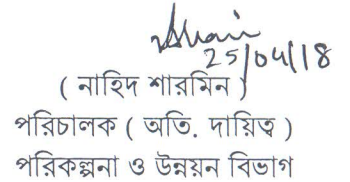 25/04/18
( নাহিদ শারমিন )
পরিচালক ( অতি. দায়িত্ব )
পরিকল্পনা ও উন্নয়ন বিভাগ